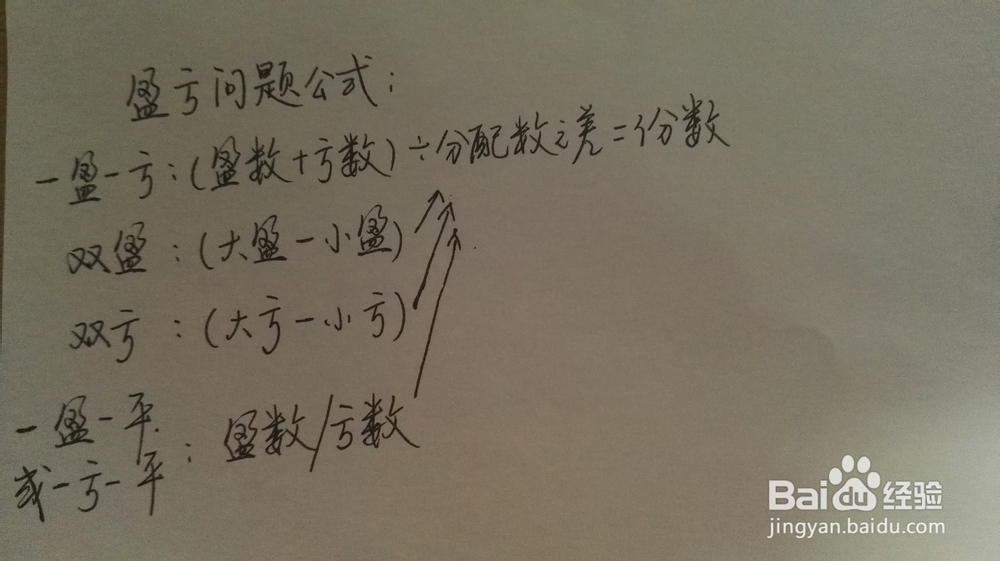 盈亏问题公式:
一盈一亏:(盈数+亏数)÷分配数之差=份数
双盈:(大盈-小盈)
双亏:(大亏-小亏)
一盈一平
或一亏一平:盈数/亏数
Baidu经验
jingyan.baidu.com